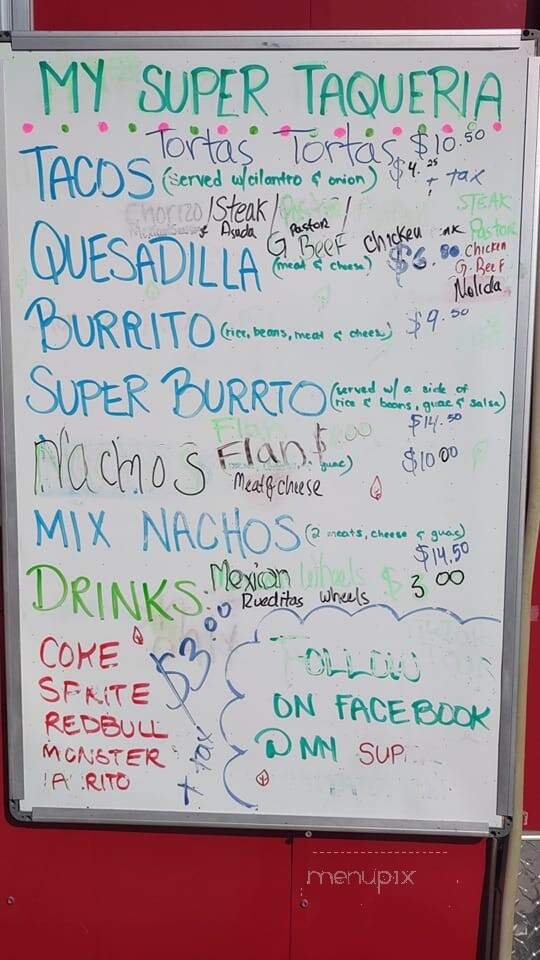 MY SUPER TAQUERIA
Tortas Tortas $10.50
TACOS (served w/cilantro & onion) $4.25 + tax
Chorizo /Steak/ Pastor /
Asada Pastor
STEAK
Pastor
chicken
G. BeeF
Nolida
G BEEF chicken
QUESADILLA (meat & cheese) $6.
BURRITO (rice, beans, meat & cheese) $9.50
SUPER BURRTO (served w/ a side of
rice & beans, guac & salsa)
$14.50
Nachos Flan $ .00 guac) $10 00
Meat & cheese
MIX NACHOS (2 meats, cheese & guac)
$14.50
DRINKS: Mexican Wheels $3.00
Rueditas wheels
$3.00 + tax
COKE
SPRITE
REDBULL
MONSTER
FOLLOW
ON FACEBOOK
@ MY SUP
menupix